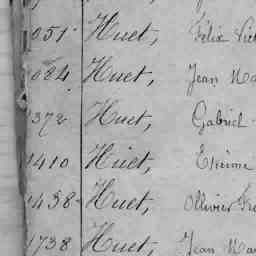 051 Huet, Félix Vict
084 Huet, Jean Ma
372 Huet, Gabriel
1410 Huet, Etienne
1438 Huet, Ollivier Fr
1738 Huet, Jean Mar